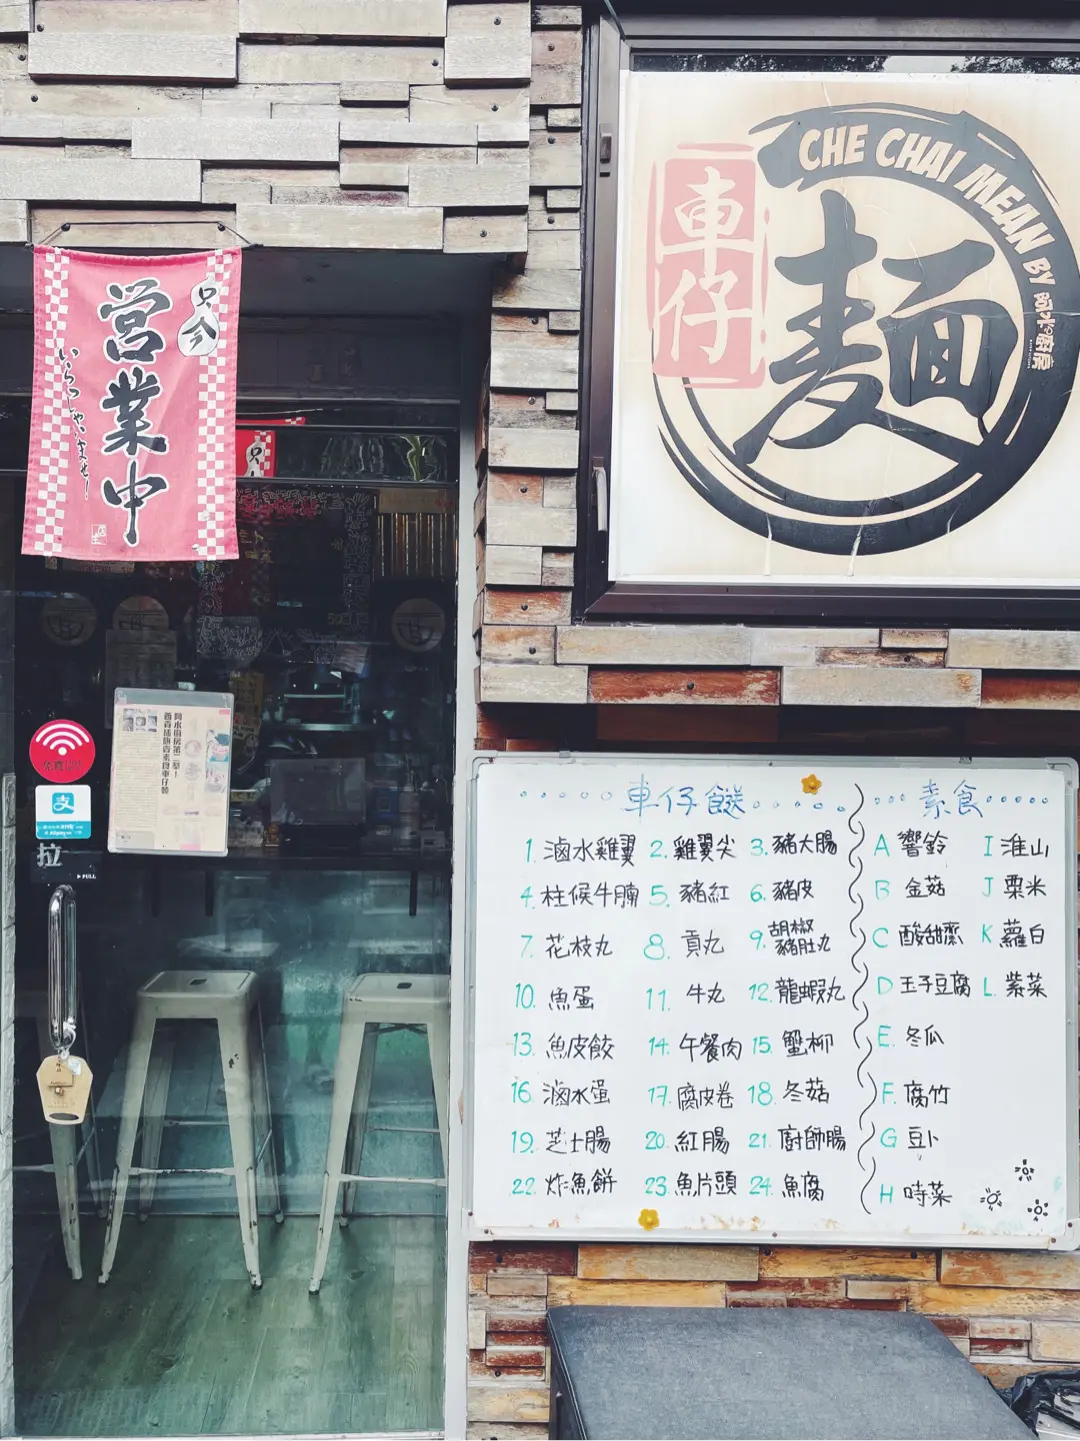 CHE CHAI MEAN BY 阿水廚房
車仔
麵
只今
営業中
いらっしゃいませ!
阿水廚房第二擊!
拉
PULL
車仔餸
素食
1. 滷水雞翼 2. 雞翼尖 3. 豬大腸
4. 柱候牛腩 5. 豬紅 6. 豬皮
7. 花枝丸 8. 貢丸 9. 胡椒豬肚丸
10. 魚蛋 11. 牛丸 12. 龍蝦丸
13. 魚皮餃 14. 午餐肉 15. 蟹柳
16. 滷水蛋 17. 腐皮卷 18. 冬菇
19. 芝士腸 20. 紅腸 21. 廚師腸
22. 炸魚餅 23. 魚片頭 24. 魚腐
A 響鈴 I 淮山
B 金菇 J 粟米
C 酸甜齋 K 蘿白
D 玉子豆腐 L. 紫菜
E. 冬瓜
F. 腐竹
G 豆卜
H 時菜